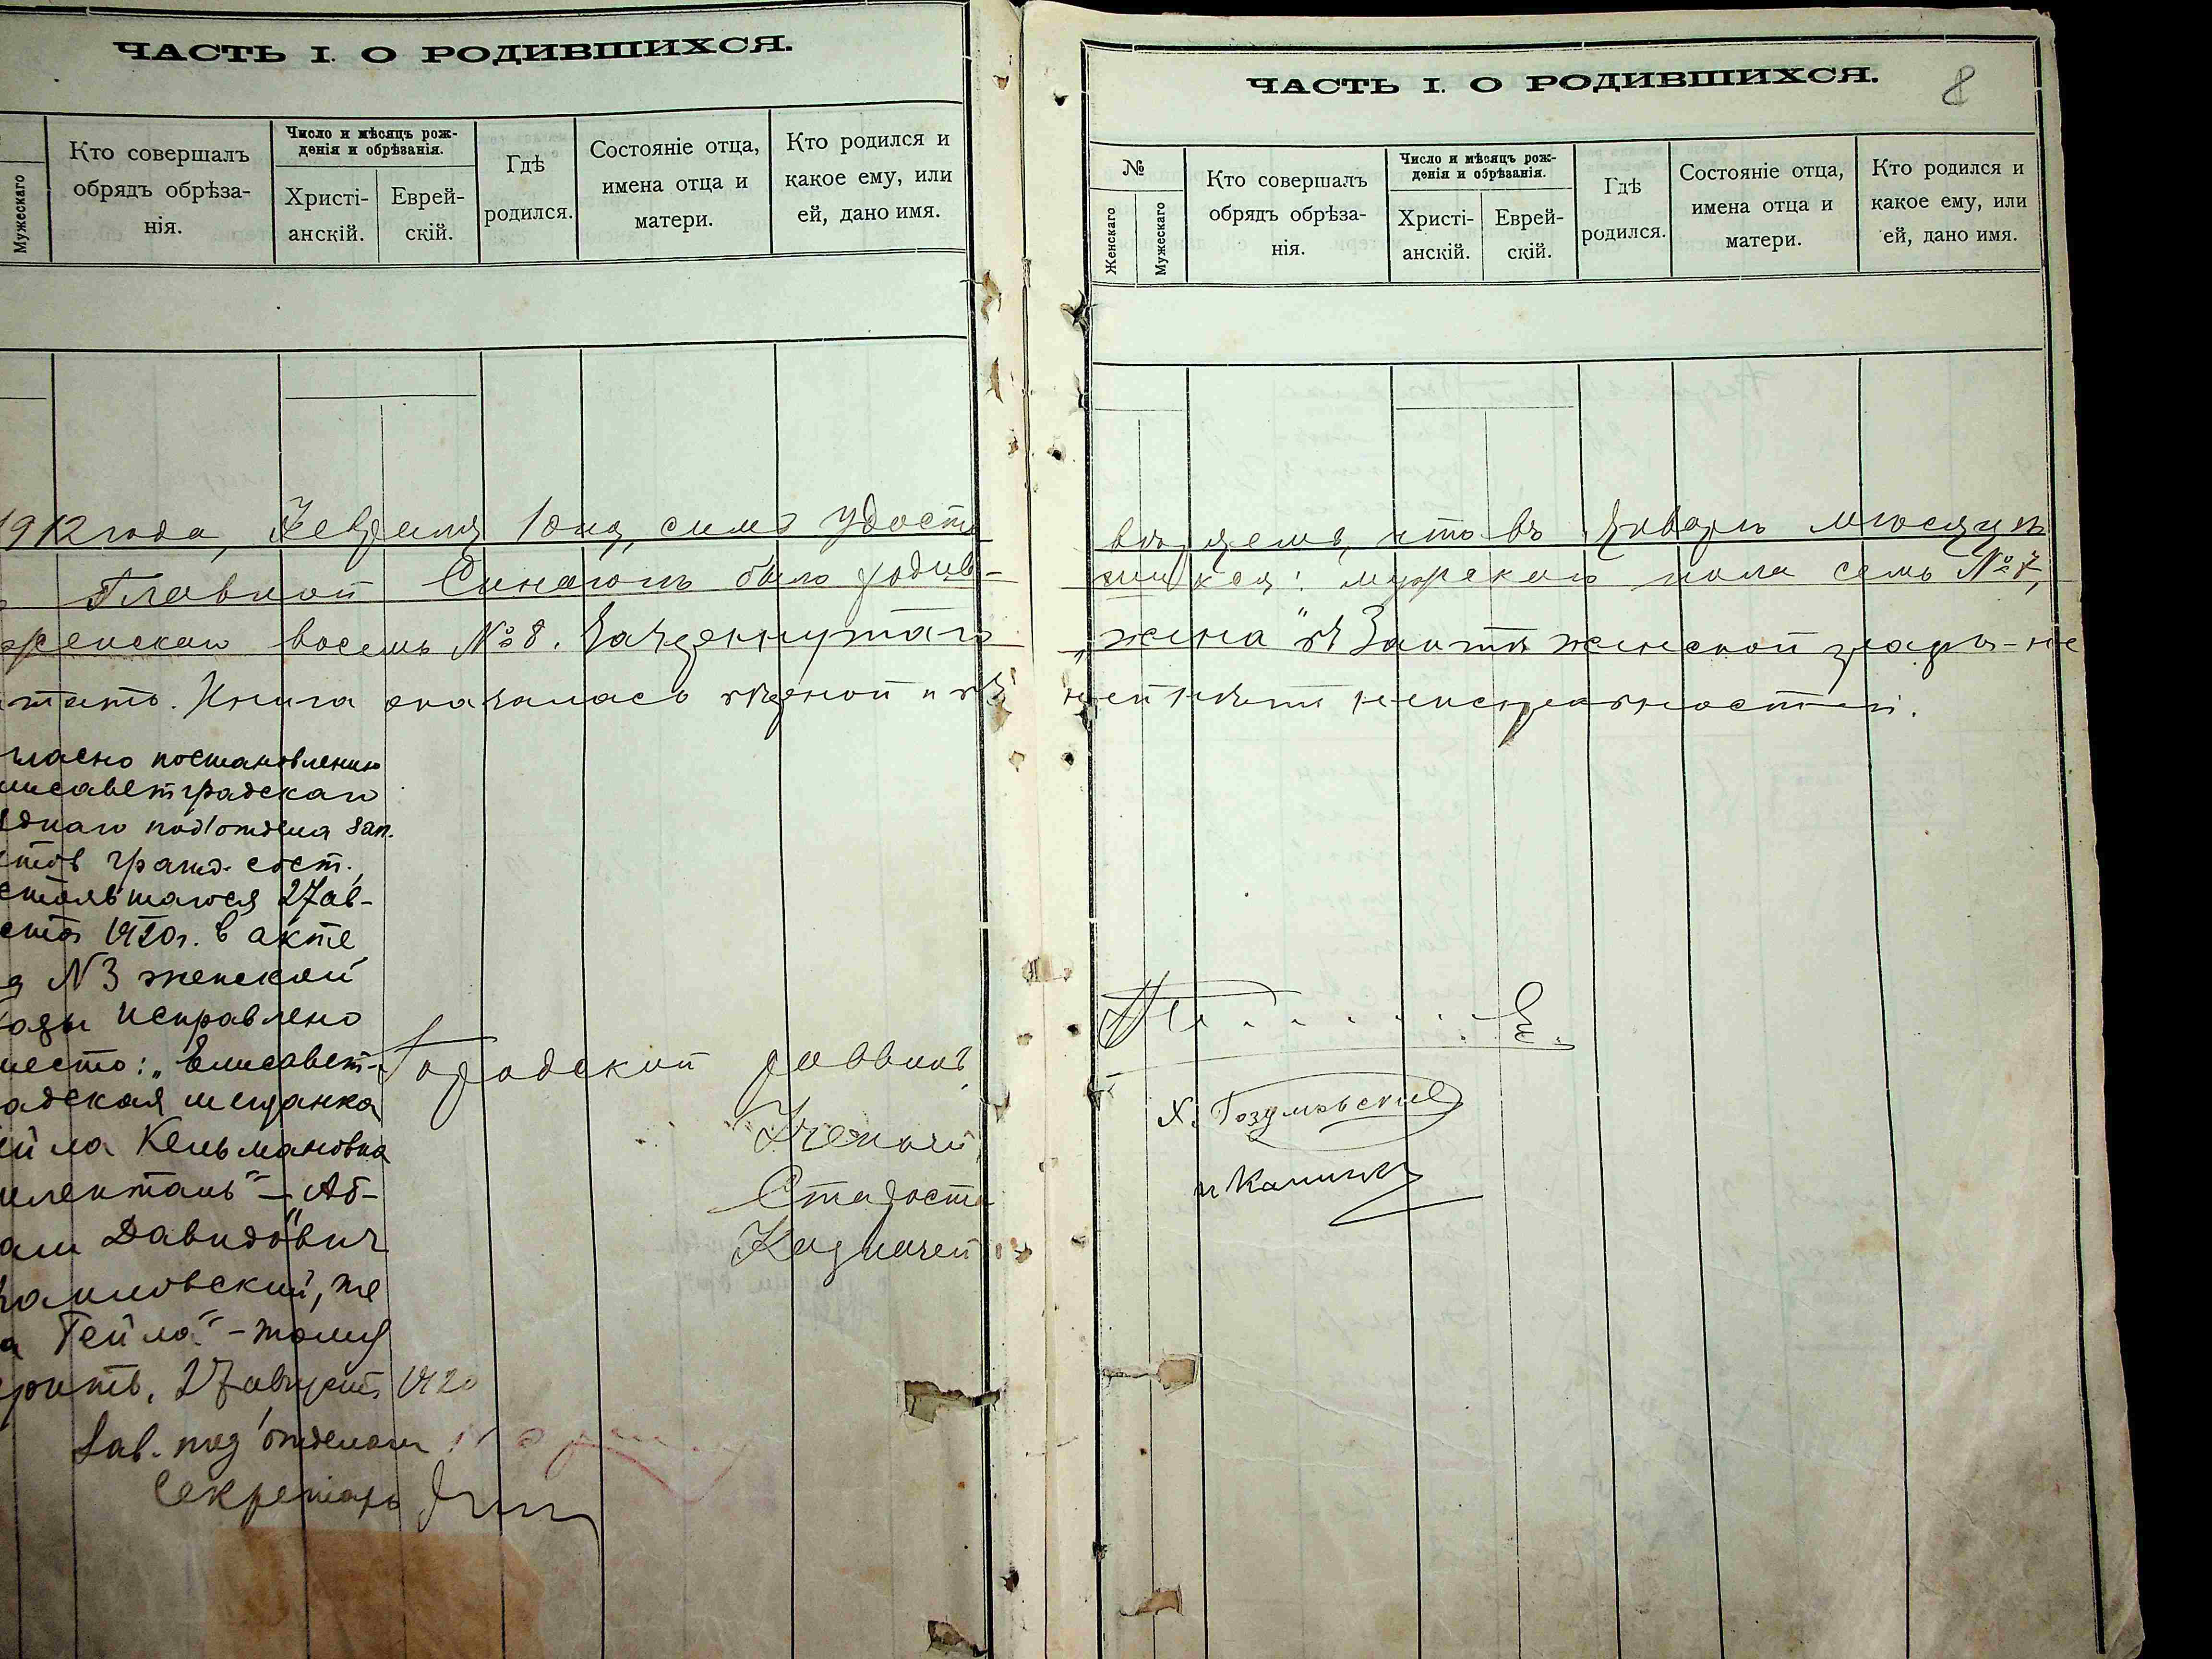 ЧАСТЬ I. О РОДИВШИХСЯ.
Мужескаго
Кто совершалъ
обрядъ обрѣза-
нія.
Число и мѣсяцъ рож-
денія и обрѣзанія.
Христі-
анскій.
Еврей-
скій.
Гдѣ
родился.
Состояніе отца,
имена отца и
матери.
Кто родился и
какое ему, или
ей, дано имя.
1912 года, Февраля 1 дня, симъ удосто
Главной Синагогѣ было родив-
женскаго восемь № 8. Зачеркнутаго
тать. Книга оказалась вѣрной и въ
гласно постановлению
лисаветградскаго
зднаго под'отдела зап.
ктов гражд. сост.,
стоявшагося 27 ав-
ста 1920 г. в акте
а N 3 женской
рады исправлено
место: „Елисавет-
адская мещанка
ейла Кельмановна
"— „Аб-
ам Давидович
, же
а Гейла" – тому
рить. 27 августа 1920
Зав. под'отделом
Секретарь
Городской раввинъ
Ученый
Староста
Казначей
ЧАСТЬ I. О РОДИВШИХСЯ.
8
№
Женскаго
Мужескаго
Кто совершалъ
обрядъ обрѣза-
нія.
Число и мѣсяцъ рож-
денія и обрѣзанія.
Христі-
анскій.
Еврей-
скій.
Гдѣ
родился.
Состояніе отца,
имена отца и
матери.
Кто родился и
какое ему, или
ей, дано имя.
вѣряемъ, что въ Январѣ мѣсяцѣ
шихся: мужескаго пола семь № 7,
„жена" въ 3 актѣ женской графы – не
ней нѣтъ неисправностей.
Х.